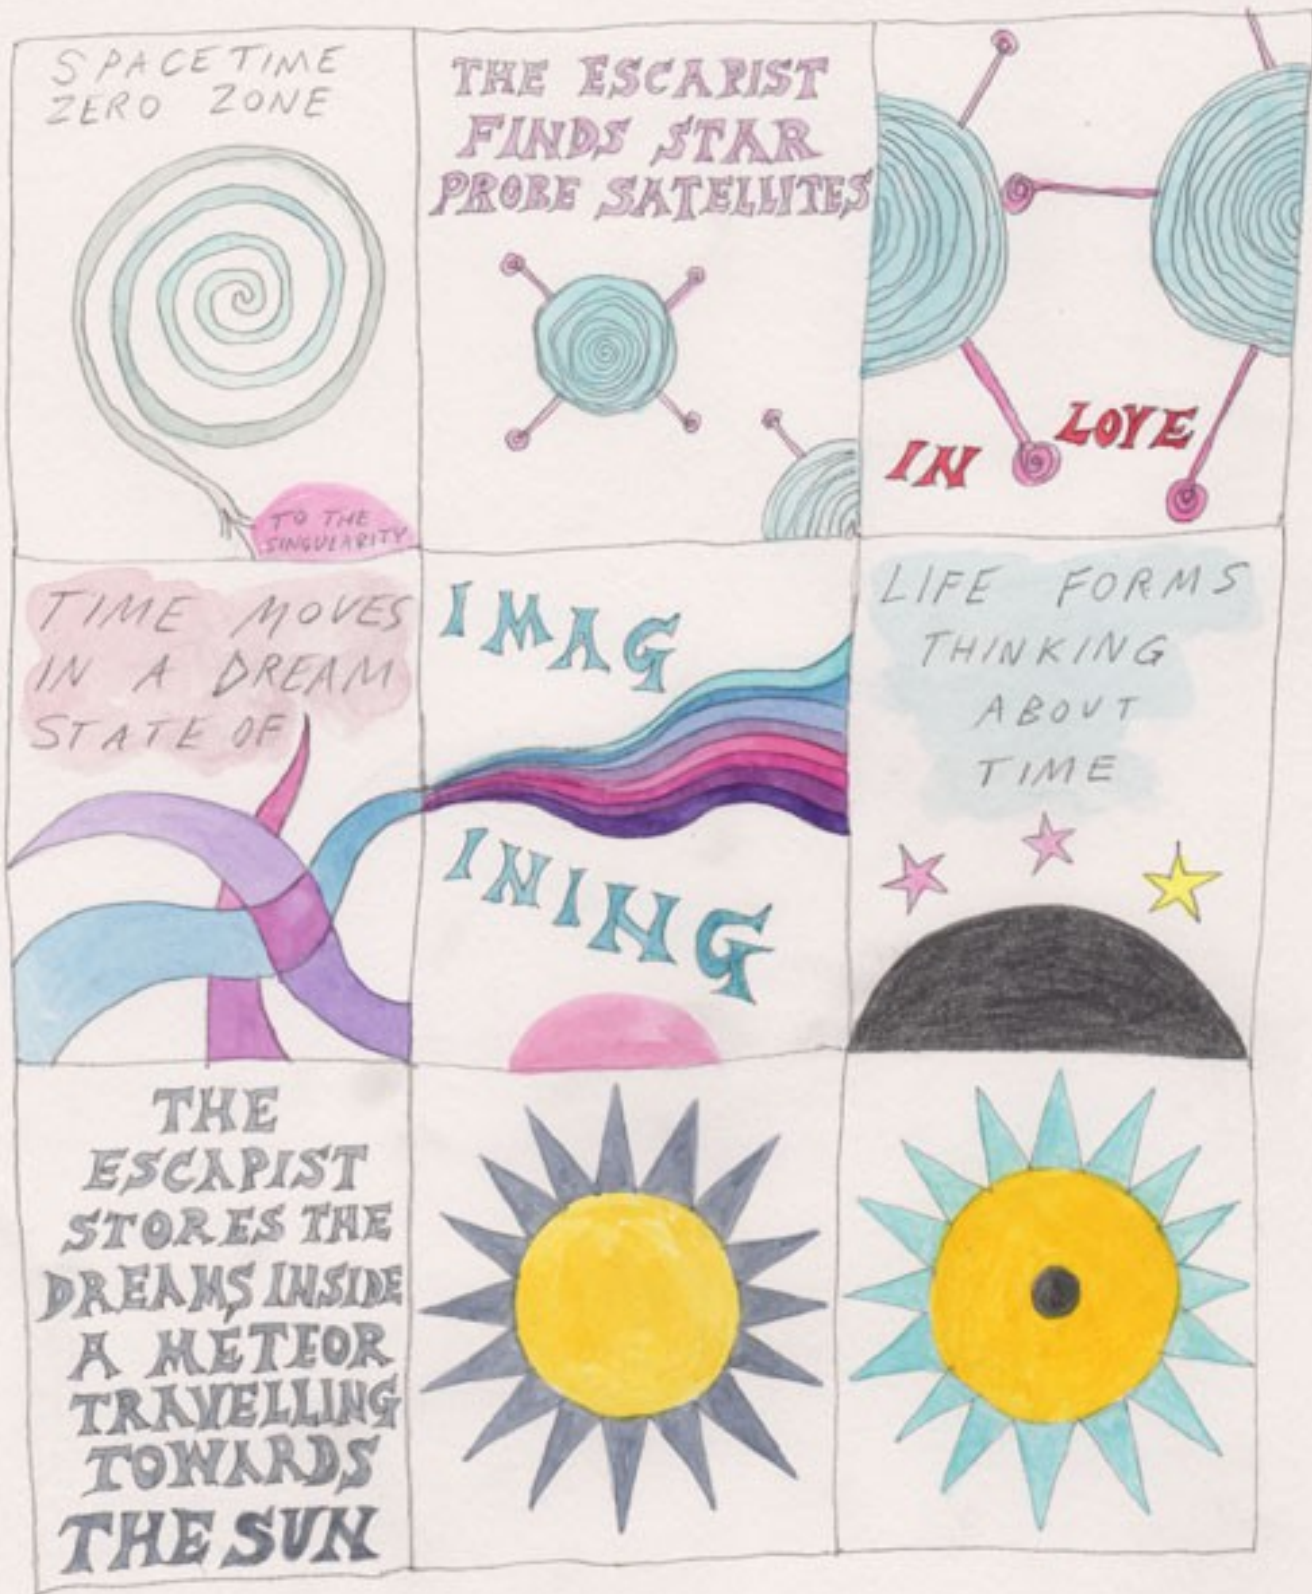 SPACETIME
ZERO ZONE
TO THE
SINGULARITY
THE ESCAPIST
FINDS STAR
PROBE SATELLITES
IN LOVE
TIME MOVES
IN A DREAM
STATE OF
IMAG
INING
LIFE FORMS
THINKING
ABOUT
TIME
THE
ESCAPIST
STORES THE
DREAMS INSIDE
A METEOR
TRAVELLING
TOWARDS
THE SUN